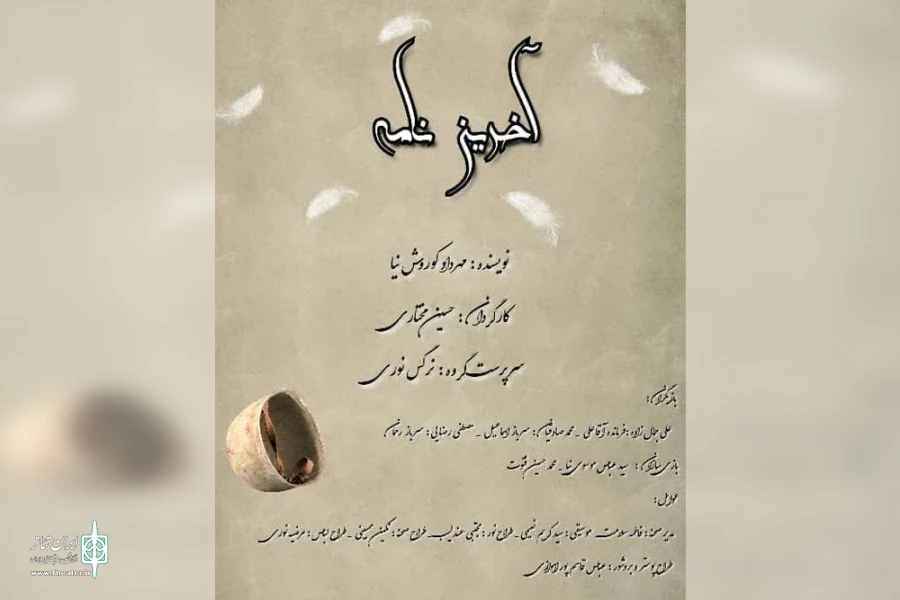 آخرین نامه
نویسنده: مهرداد کوروش نیا
کارگردان: حسین مختاری
سرپرست گروه: نرگس نوری
بازیگران:
علی جمال زاده: فرمانده آقاعلی - محمد صادقیان: سرباز اسماعیل - مصطفی رضایی: سرباز رحمان
بازی سازان: سید عباس موسوی نیا - محمد حسین قنوت
عوامل:
مدیر صحنه: فاطمه سلامت موسیقی: سید کریم نعیمی - طراح نور: مجتبی عندلیب - طراح صحنه: نگین مسیبی - طراح لباس: مرضیه نوری
طراح پوستر و بروشور: عباس قاسم پور اهوازی
ایران تئاتر
www.Theater.ir